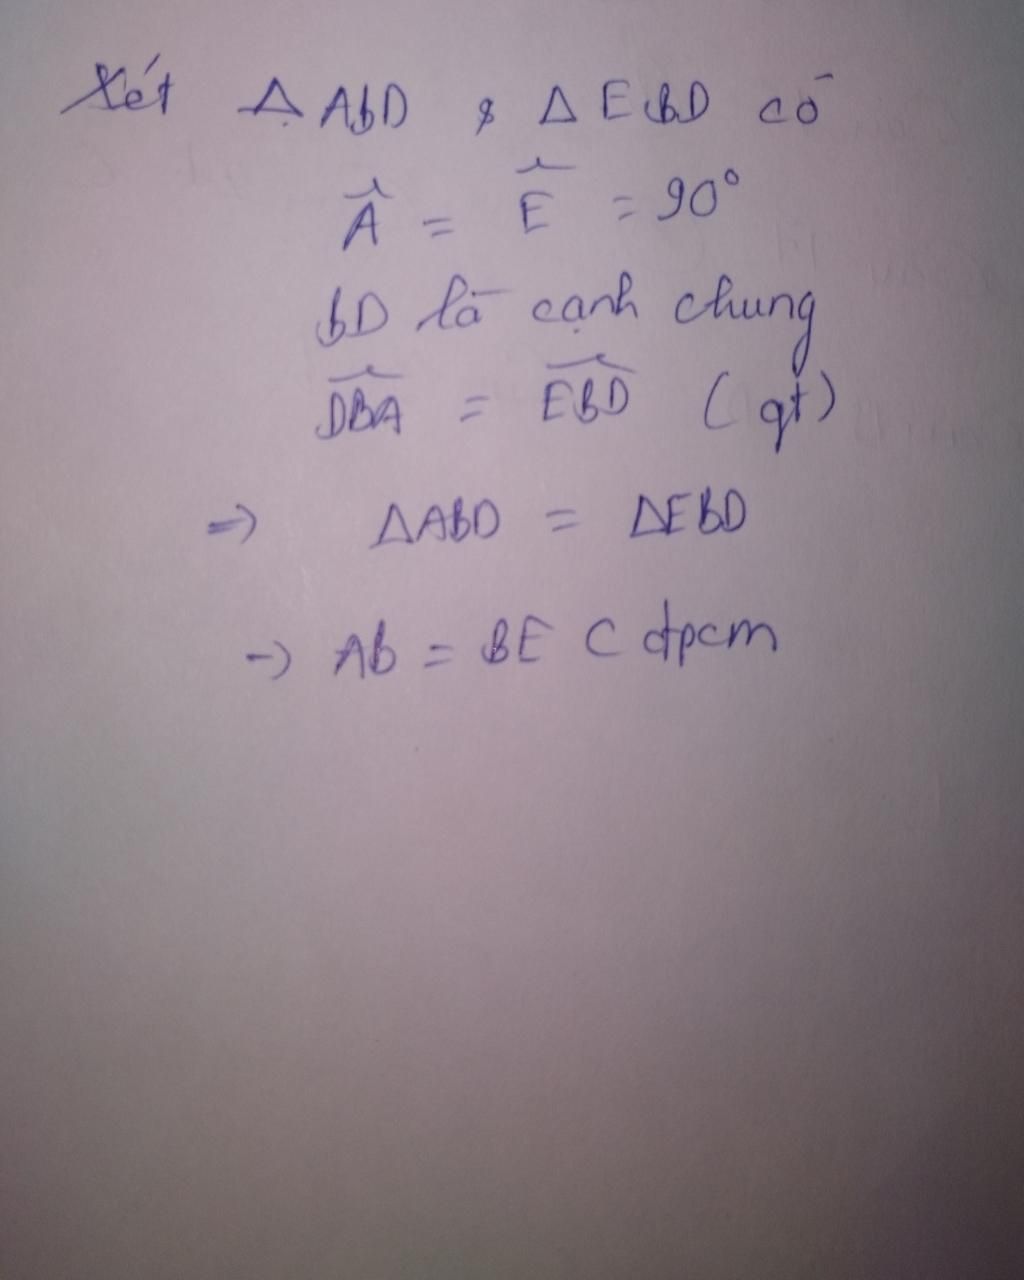 Xét Δ ABD & Δ EBD có
Â = Ê = 90°
BD là cạnh chung
DBA = EBD (gt)
=> ΔABD = ΔEBD
-> AB = BE ( đpcm